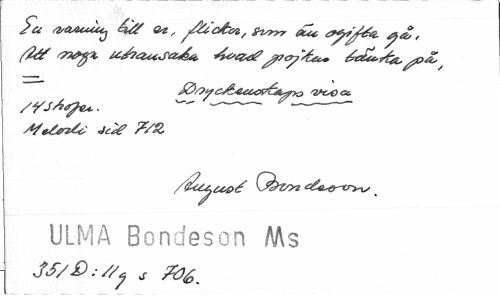 En varning till er, flickor, som än ogifta gå.
Att noga utransaka hvad pojkar tänka på,
Dryckenskaps visa
14 strofer.
Melodi sid 712
August Bondeson.
ULMA Bondeson Ms
351 D:11 q s 706.